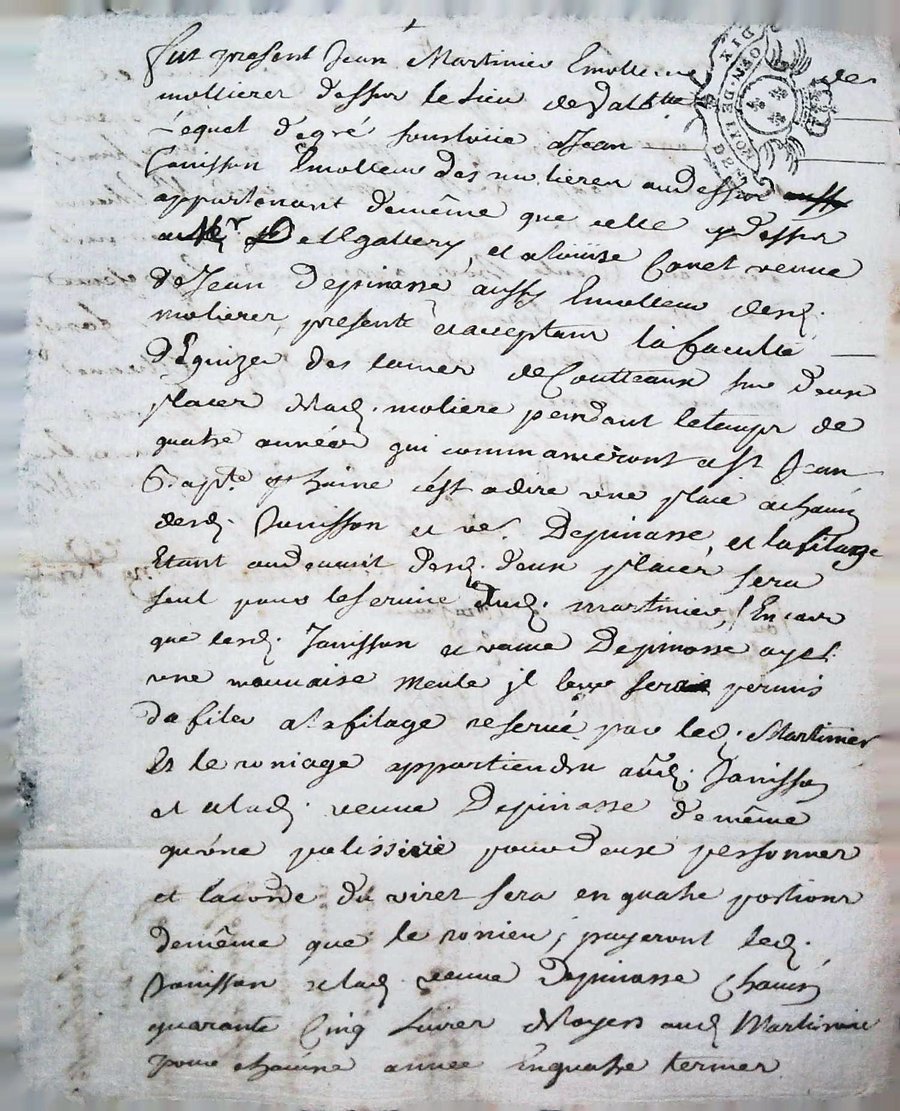 fut present Jean Martinier Emolleur des
mollieres dessur le lieu de
Lequel degré soustoüe a Jean
Janisson Emolleur des molieres audessur
appartenant demême que celle y dessur
a Mr De Lgallery, et a loüise Conet veuve
de Jean Depinasse aussy Emolleur desd.
molieres, presente et acceptant la faculté
D'Eguizer des lames de Coutteaux sur deux
places de lad. moliere pendant le temps de
quatre années qui commanceront a St Jean
Bapte prochaine c'est adire une place a chacun
desd. Janisson et ve. Depinasse, et la filage
Etant audevant desd. deux places sera
seul pour le servise dud. martinier, En cas
que lesd. Janisson et veuve Depinasse ayet
une mauvaise meule jl leur sera permis
dafiler a la filage reservé par led. Martinier
Et le roniage appartiendra aud. Janisson
et a lad. veuve Depinasse demême
qu'une polissoire pour deux personnes
et la corde du virer sera en quatre portions
demême que le ronieu; payeront led.
Janisson et lad. veuve Depinasse Chacun
quarante Cinq Livres de loyers aud. Martinier
pour chacune année En quatre termes
DIX
MOYEN. DE